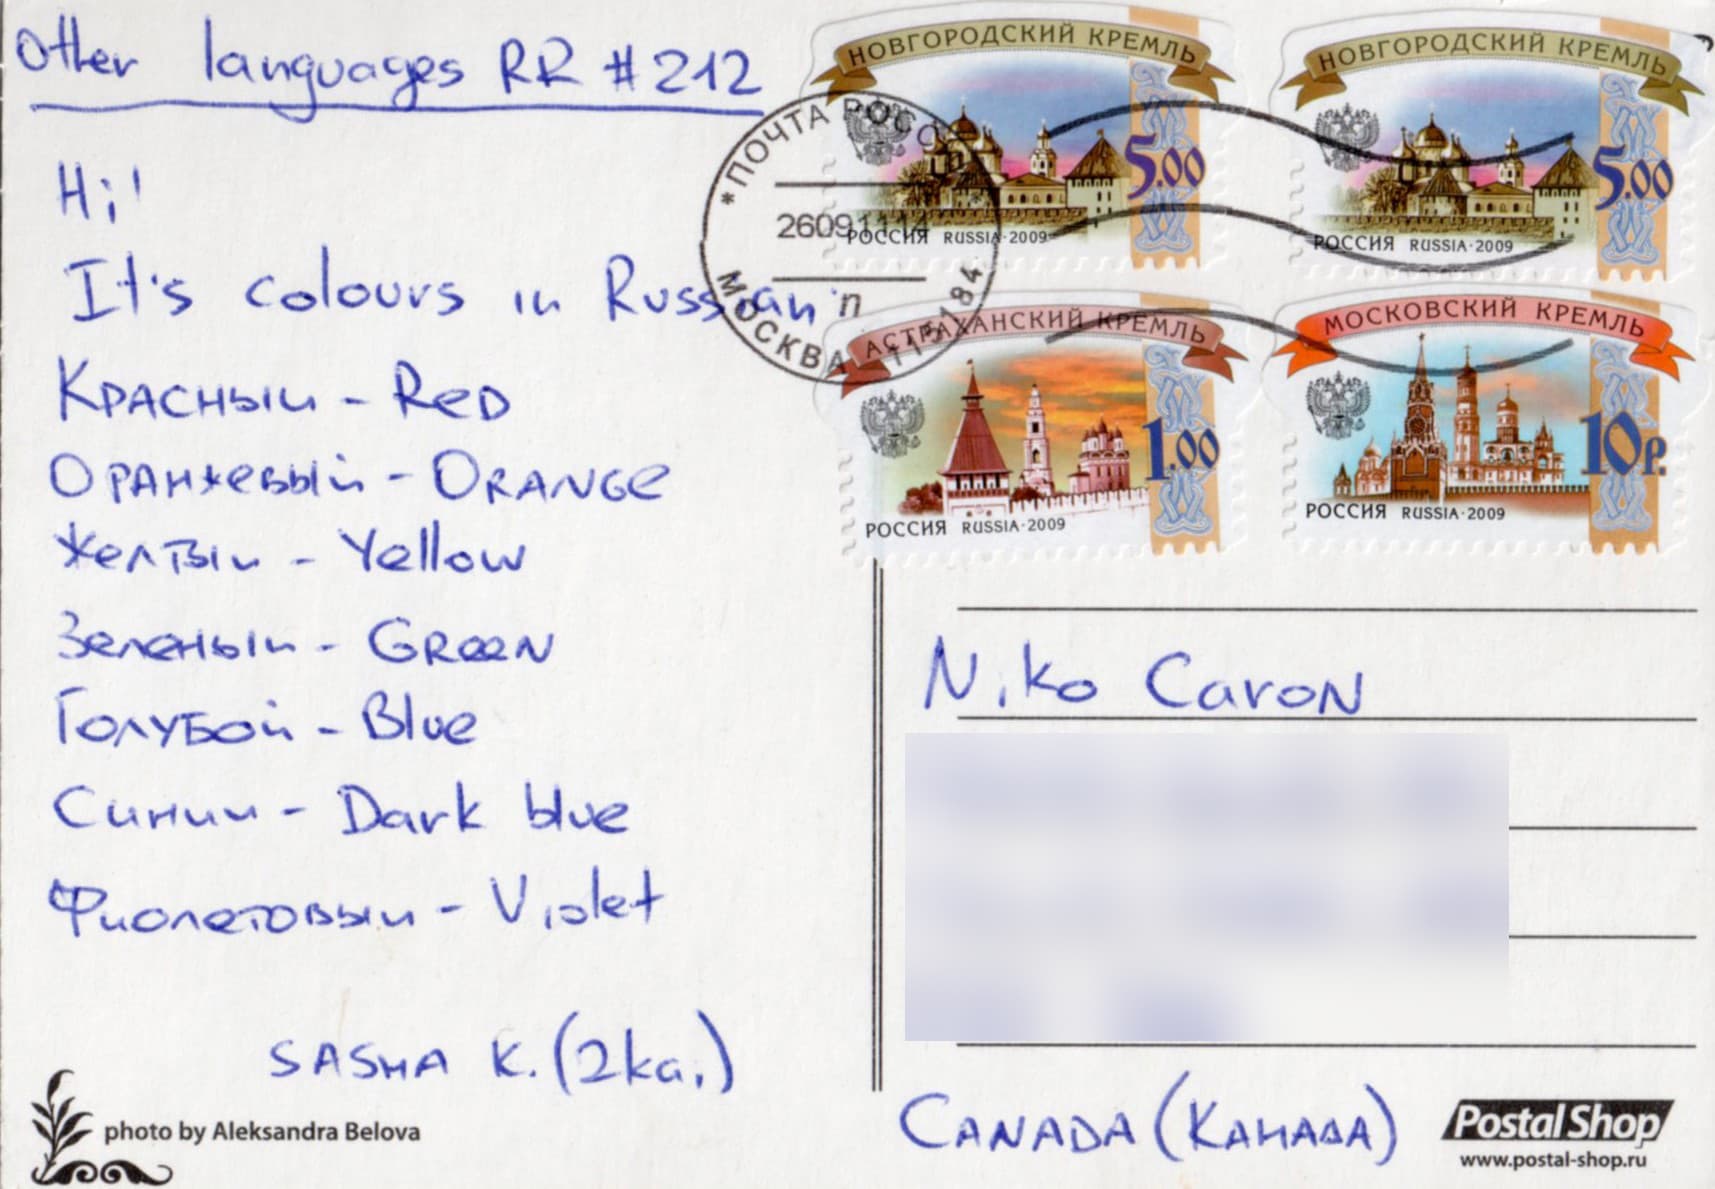 Other languages RR #212
Hi!
It's colours in Russian
Красный - Red
Оранжевый - Orange
Желтый - Yellow
Зеленый - Green
Голубой - Blue
Синий - Dark blue
Фиолетовый - Violet
SASHA K. (2kai)
photo by Aleksandra Belova
НОВГОРОДСКИЙ КРЕМЛЬ
5.00
РОССИЯ RUSSIA·2009
НОВГОРОДСКИЙ КРЕМЛЬ
5.00
РОССИЯ RUSSIA·2009
АСТРАХАНСКИЙ КРЕМЛЬ
1.00
РОССИЯ RUSSIA·2009
МОСКОВСКИЙ КРЕМЛЬ
10р.
РОССИЯ RUSSIA·2009
*ПОЧТА РОСС
МОСКВА 115184
П
Niko Caron
CANADA (КАНАДА)
Postal Shop
www.postal-shop.ru